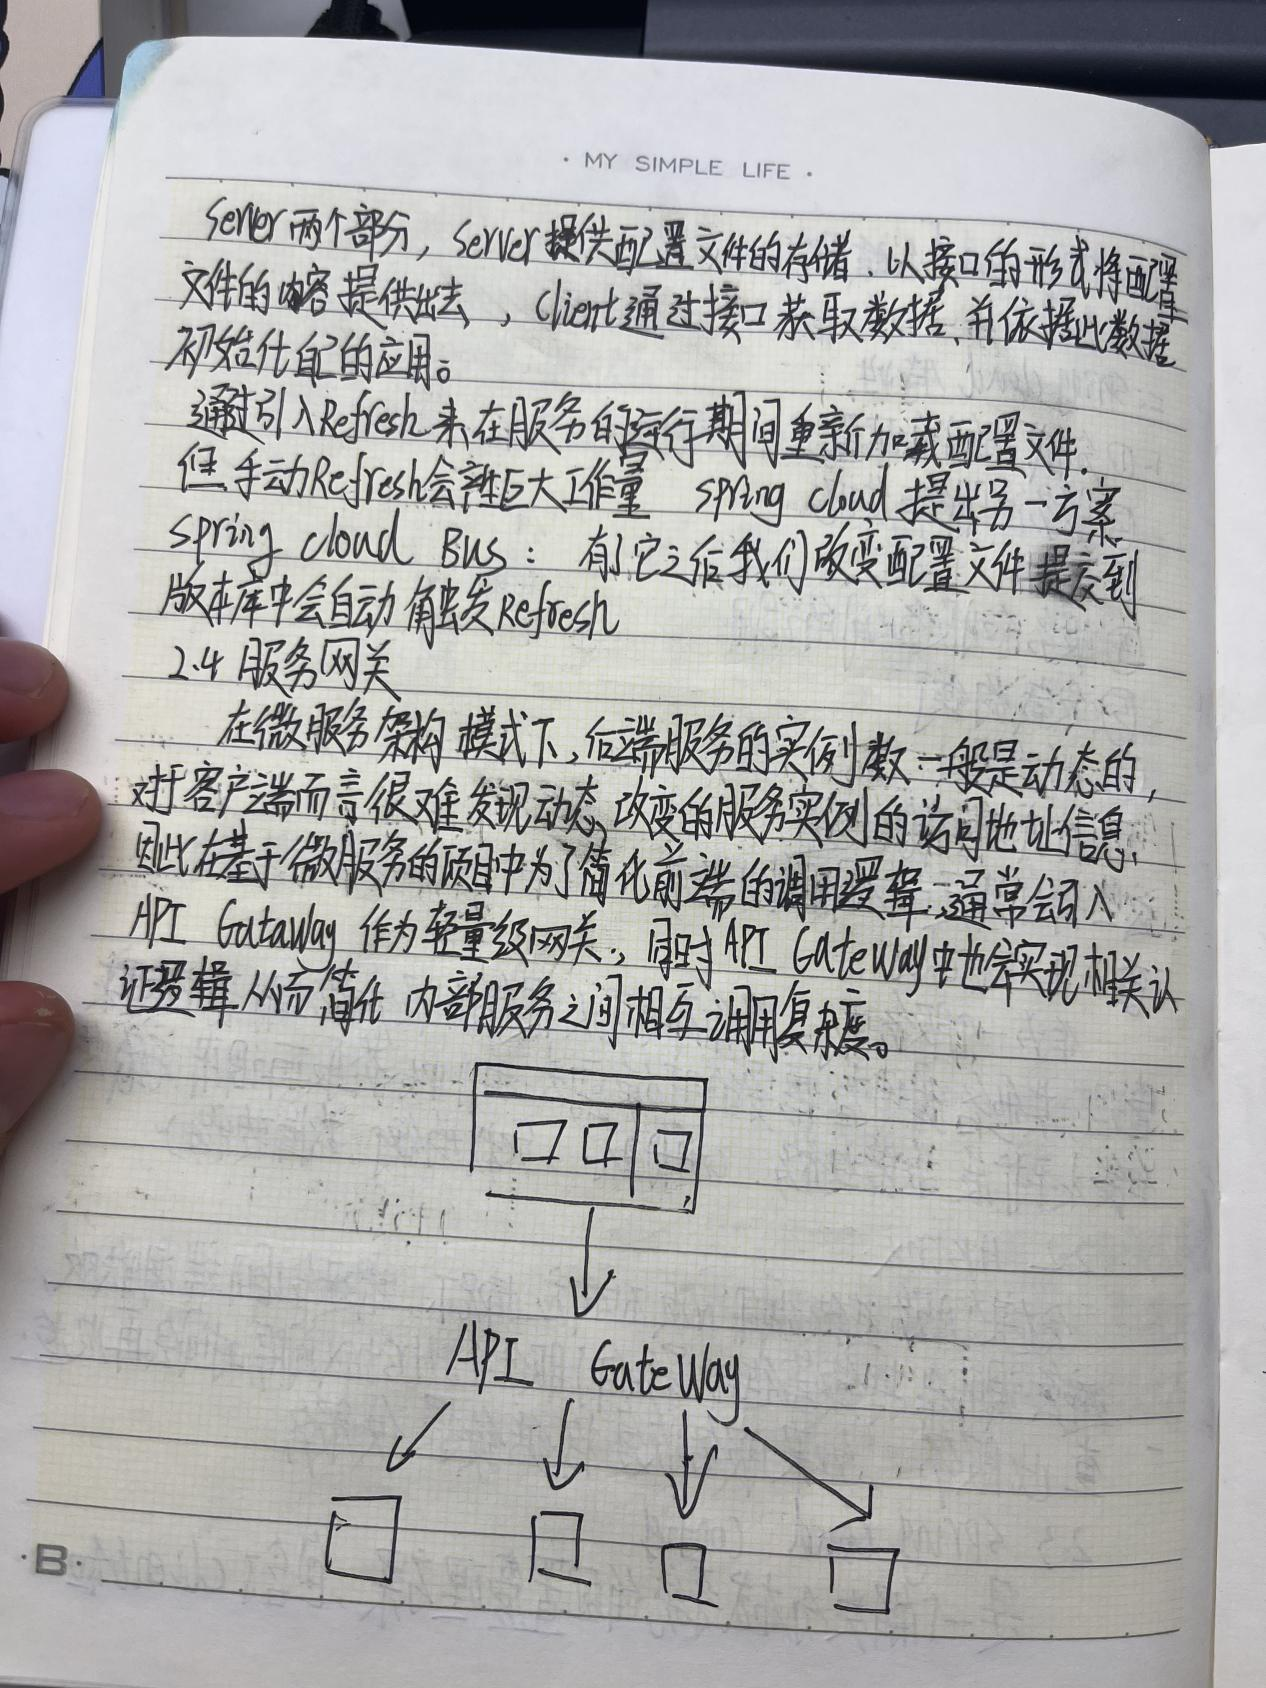 · MY SIMPLE LIFE ·
Server两个部分，Server提供配置文件的存储、以接口的形式将配置
文件的内容提供出去，Client通过接口获取数据、并依据此数据
初始化自己的应用。
通过引入Refresh来在服务的运行期间重新加载配置文件.
但手动Refresh会巨大工作量 Spring cloud 提出另一方案
Spring cloud Bus：有了它之后我们改变配置文件提交到
版本库中会自动触发Refresh
2.4 服务网关
在微服务架构模式下，后端服务的实例数一般是动态的，
对于客户端而言很难发现动态改变的服务实例的访问地址信息.
因此在基于微服务的项目中为了简化前端的调用逻辑，通常会引入
API GataWay 作为轻量级网关，同时API GateWay中也会实现相关认
证逻辑从而简化 内部服务之间相互调用复杂度。
API GateWay
· B ·